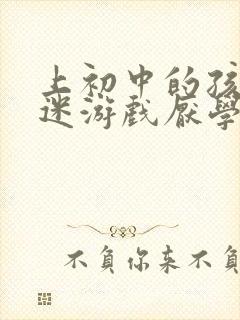 上初中的孩
迷游戏厌學
不負你来不負